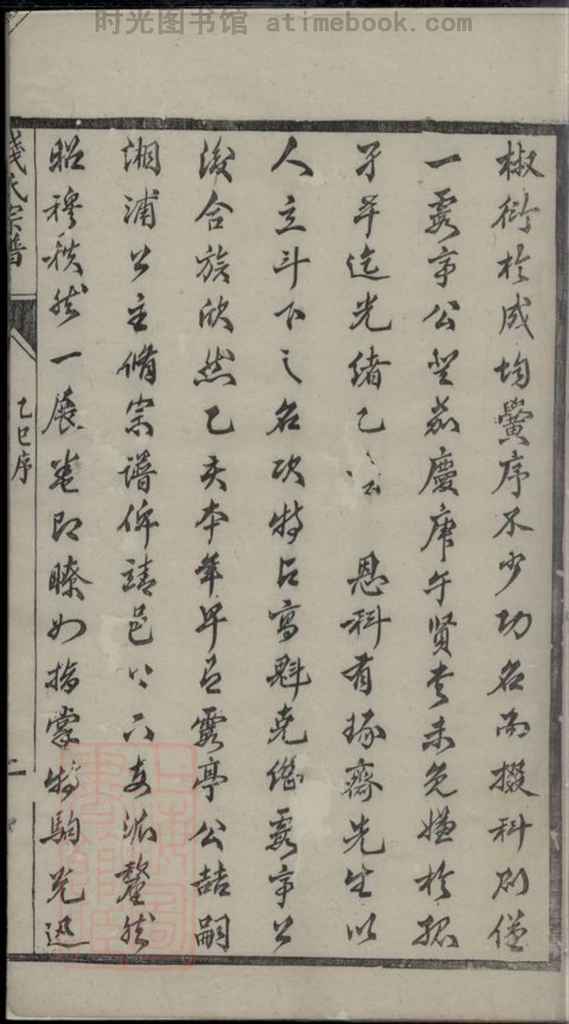 时光图书馆 atimebook.com
椒衍於成均黌序不少功名而掇科則僅
一露亭公登嘉慶庚午賢書未免嫌於孤
孑年迄光緒乙 恩科有琢齋先生以
人立斗下之名次特占高魁克繼露亭公
後合族欣然乙亥本年早已露亭公喆嗣
湘浦公主脩宗譜俾請邑 六支派釐然
昭穆秩然一展卷即瞭如指掌特駒光迅
錢氏宗譜
乙巳序
二